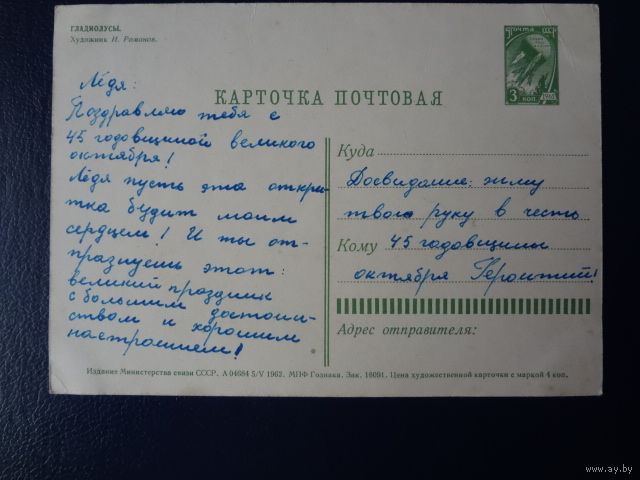 ГЛАДИОЛУСЫ.
Художник И. Романов.
ПОЧТА СССР
3 КОП
КАРТОЧКА ПОЧТОВАЯ
Лёдя:
Поздравляю тебя с
45 годовщиной великого
октября!
Лёдя пусть эта откры-
тка будит моим
сердцем! И ты от-
празнуешь этот:
великий праздник
с большим достоин-
ством и хорошим
настроением!
Куда
Досвидание: жму
твою руку в честь
Кому 45 годовщины
октября Геронтий!
Адрес отправителя:
Издание Министерства связи СССР. А 04684 5/V 1962. МПФ Гознака. Зак. 16091. Цена художественной карточки с маркой 4 коп.
www.ay.by